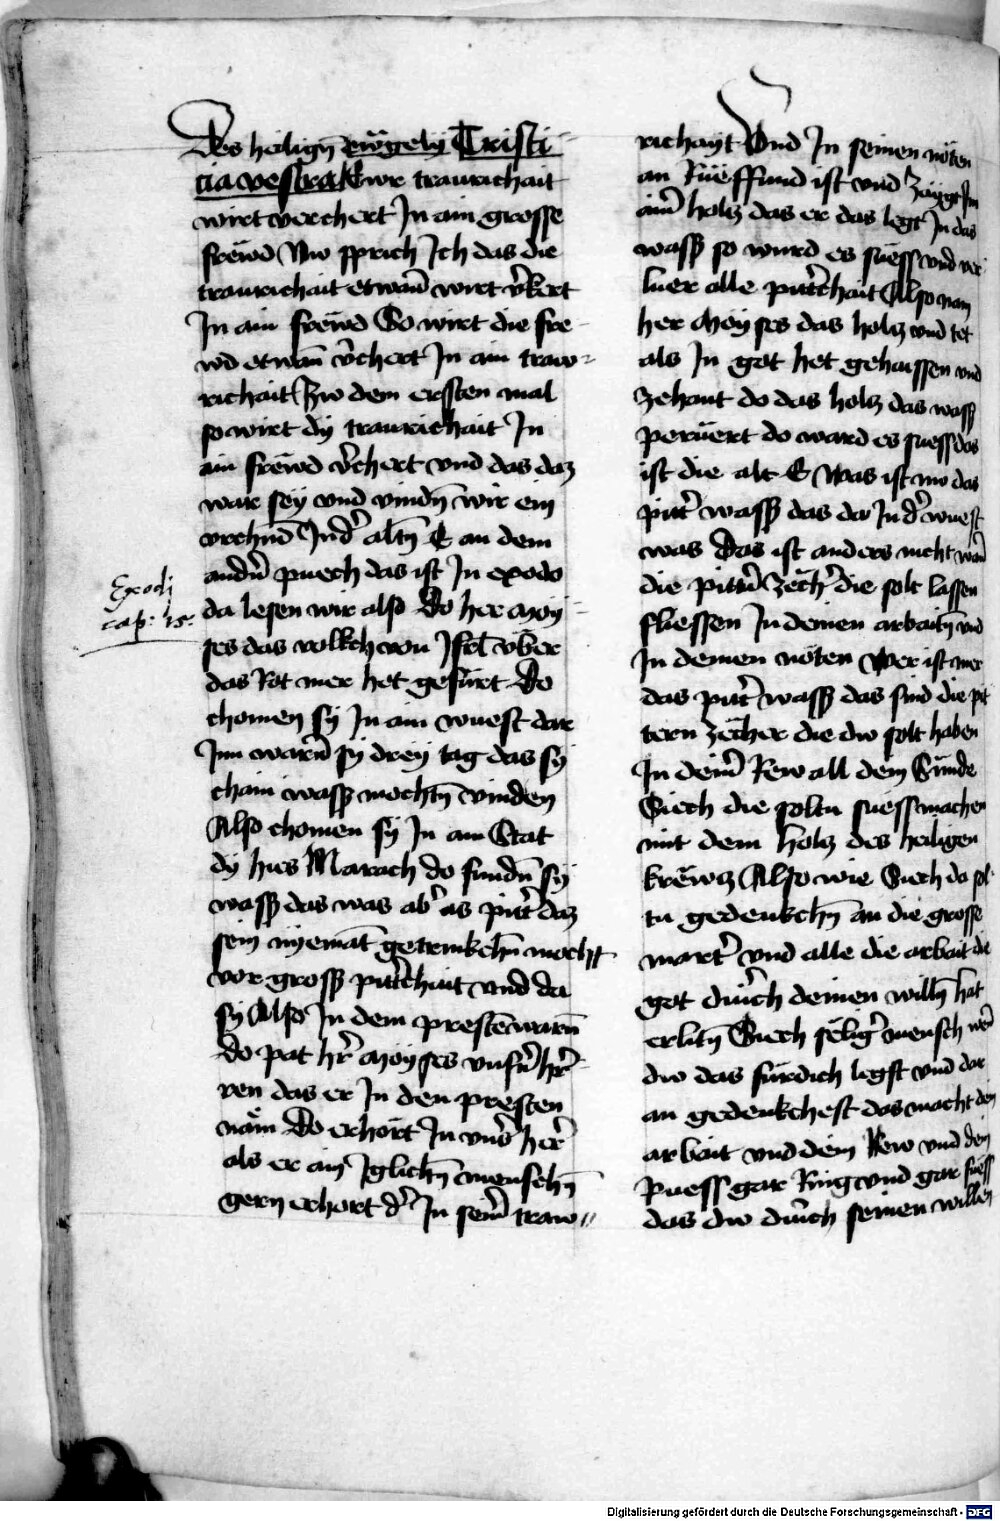 Des heilign̄ ewӓgely Tristi-
cia vestra Ewr traurichait
wirt verchert In ain grosse
frëwd Nw sprich Ich das die
traurichait etwan̄ wirt v̄kert
In ain frëwd So wirt die fre-
wd etwan̄ v̄chert In ain traw-
richait Zw dem erssten mal
so wirt dy traurichait In
ain frëwd v̄chert vnd das daz
war sey vnd vindn̄ wir ein
vrchūd In d̄ altn̄ E an dem
andn̄ puech das ist In exodo
Exodj
cap: 15:
da lesen wir also Do her Moy-
ses das volkch von Isrl̄ vber
das Rot mer het gefürt Do
chomen sy In ain wuest dar
Inn warn̄ sy drey tag das sy
chain wassß mochtn̄ vinden
Also chomen sy In ain Stat
dy hies Marach do fundn̄ sy
wassß das was ab̄ as pitt̄ daz
sein nyemāt getrinkchn̄ mocht
vor grossß pitt̄chait vnd da
sy Also In dem prestē warn̄
do pat hr̄ Moyses vnsn̄ hr̄-
ren das er In den presten
näm Do erhört In vns̄ her̄
als er ain̄ Iglichn̄ menschn̄
gern erhort d̄ In sein̄ traw-
richayt Vnd In seinen nöten
an Rüeffund ist vnd zaigt Im
ain̄ holtz das er das legt In das
wassß so wurd es süess vnd ver
luer alle pitt̄chait Also nam
her Moyses das holtz vnd tet
als In got het gehaissen vnd
zehant do das holtz das wassß
perüert do ward es suess das
ist die alt E Was ist nw das
pitt̄ wassß das da In d̄ wuest
was Das ist anders nicht wan̄
die pittn̄ zëch̄ die solt lassen
fliessen In deinen arbaitn̄ vnd
In deinen nöten Wer ist mer
das pitt̄ wassß das sind die pit
tern zëcher die dw solt haben
In dein̄ Rew all dem Sünde
Siech die soltu suess machen
mit dem holtz des heiligen
krëwtz Also wie Siech da sol-
tu gedenkchn̄ an die grosse
mart̄ vnd alle die arbait die
got durch deinen willn̄ hat
erlitn̄ Siech sëliḡ mensch wen̄
dw das für dich legst vnd dar
an gedenkchest das macht den
arbait vnd dein Rew vnd den
puess gar Ring vnd gar süess
das dw durch seinen willen
Digitalisierung gefördert durch die Deutsche Forschungsgemeinschaft - DFG